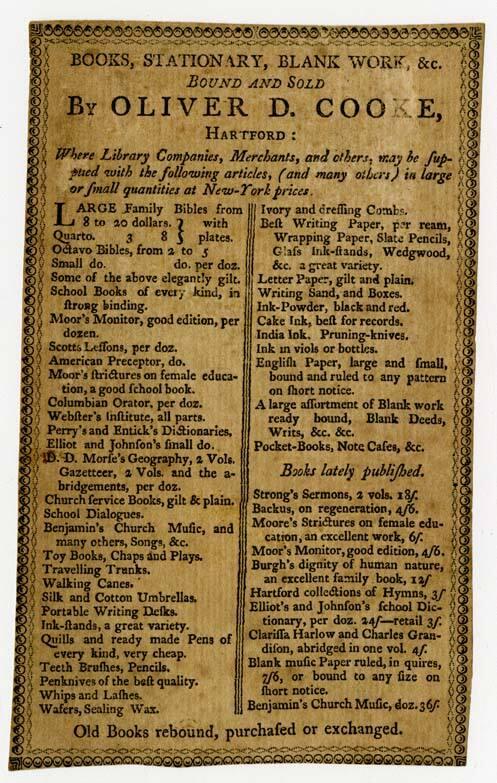 BOOKS, STATIONARY, BLANK WORK, &c.
BOUND AND SOLD
BY OLIVER D. COOKE,
HARTFORD:
Where Library Companies, Merchants, and others, may be ſup-
plied with the following articles, (and many others) in large
or ſmall quantities at New-York prices.
LARGE Family Bibles from
8 to 20 dollars. } with
Quarto. 3 8 } plates.
Octavo Bibles, from 2 to 5
Small do. do. per doz.
Some of the above elegantly gilt.
School Books of every kind, in
ſtrong binding.
Moor's Monitor, good edition, per
dozen.
Scotts Leſſons, per doz.
American Preceptor, do.
Moor's ſtrictures on female educa-
tion, a good ſchool book.
Columbian Orator, per doz.
Webſter's Inſtitute, all parts.
Perry's and Entick's Dictionaries.
Elliot and Johnſon's ſmall do.
D. D. Morſe's Geography, 2 Vols.
Gazetteer, 2 Vols. and the a-
bridgements, per doz.
Church ſervice Books, gilt & plain.
School Dialogues.
Benjamin's Church Muſic, and
many others, Songs, &c.
Toy Books, Chaps and Plays.
Travelling Trunks.
Walking Canes.
Silk and Cotton Umbrellas.
Portable Writing Deſks.
Ink-ſtands, a great variety.
Quills and ready made Pens of
every kind, very cheap.
Teeth Bruſhes, Pencils.
Penknives of the beſt quality.
Whips and Laſhes.
Wafers, Sealing Wax.
Ivory and dreſſing Combs.
Beſt Writing Paper, per ream,
Wrapping Paper, Slate Pencils,
Glaſs Ink-ſtands, Wedgwood,
&c. a great variety.
Letter Paper, gilt and plain.
Writing Sand, and Boxes.
Ink-Powder, black and red.
Cake Ink, beſt for records.
India Ink. Pruning-knives.
Ink in viols or bottles.
Engliſh Paper, large and ſmall,
bound and ruled to any pattern
on ſhort notice.
A large aſſortment of Blank work
ready bound, Blank Deeds,
Writs, &c. &c.
Pocket-Books, Note Caſes, &c.
Books lately publiſhed.
Strong's Sermons, 2 vols. 18ſ.
Backus, on regeneration, 4/6.
Moore's Strictures on female edu-
cation, an excellent work, 6ſ.
Moor's Monitor, good edition, 4/6.
Burgh's dignity of human nature,
an excellent family book, 12ſ
Hartford collections of Hymns, 3ſ
Elliot's and Johnſon's ſchool Dic-
tionary, per doz. 24ſ—retail 3ſ.
Clariſſa Harlow and Charles Gran-
diſon, abridged in one vol. 4ſ.
Blank muſic Paper ruled, in quires,
7/6, or bound to any ſize on
ſhort notice.
Benjamin's Church Muſic, doz. 36ſ.
Old Books rebound, purchaſed or exchanged.